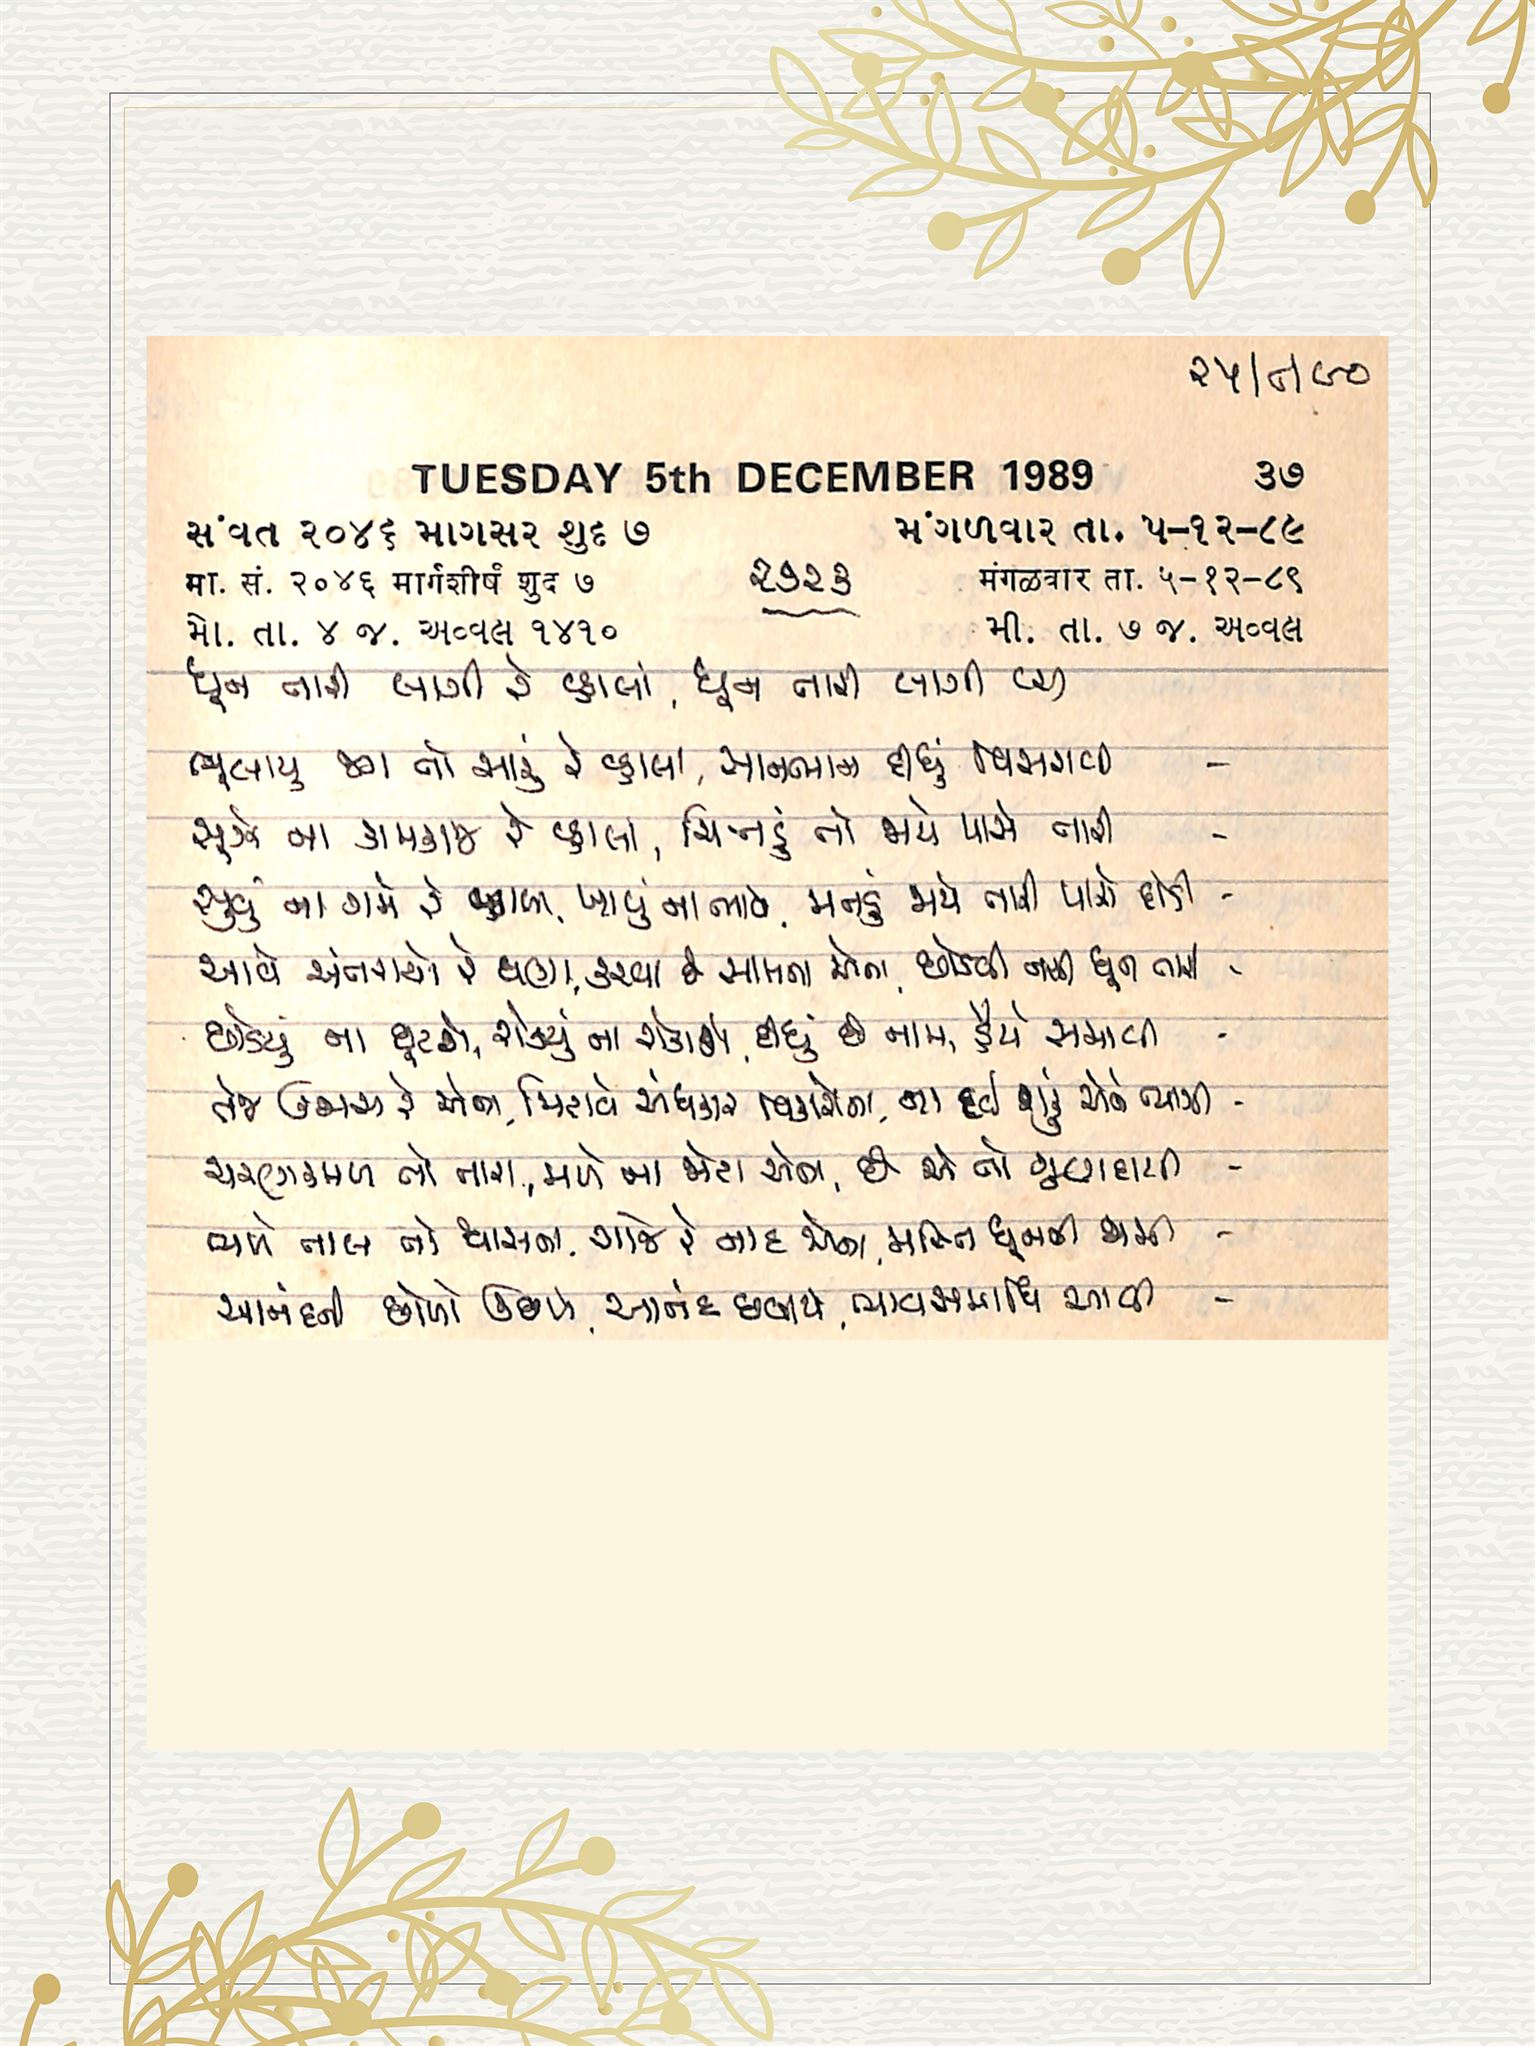 ૨૫/૭/૯૦
TUESDAY 5th DECEMBER 1989 ૩૭
સંવત ૨૦૪૬ માગસર શુદ ૭ મંગળવાર તા. ૫-૧૨-૮૯
मा. सं. २०४६ मार्गशीर्ष शुद ७ ૨૭૨૩ मंगळवार ता. ५-१२-८९
મો. તા. ૪ જ. અવ્વલ ૧૪૧૦ મી. તા. ૭ જ. અવ્વલ
ધૂન તારી લાગી રે વ્હાલાં, ધૂન તારી લાગી
ભૂલાયુ જગ તો સારું રે વ્હાલા, સાનભાન દીધું વિસરાવી -
સૂઝે ના કામકાજ રે વ્હાલા, ચિત્તડું તો જાયે પાસે તારી -
સુવું ના ગમે રે વ્હાલા, ખાવું ના ભાવે, મનડું જાયે તારી પાસે દોડી -
આવે અંતરાયો રે ઘણા, કરવા છે સામના એના, છોડવી નથી ધૂન તારી -
છોડયું ના છૂટશે, રોક્યું ના રોકાશે, દીધું છે નામ, હૈયે સમાવી -
તેજ ઉજાસ રે એના, મિટાવે અંધકાર વિકારોના, ના હવે શકું એને ત્યાગી -
ચરણકમળ તો તારા, મળે ના જોટા એના, છે એ તો ગુણકારી -
મળે તાલ તો શ્વાસના, ગાજે રે નાદ એના, મસ્તિ ધૂનની જામી -
આનંદની છોળો ઉછળે, આનંદ છવાયે, ભાવસમાધિ આવી -